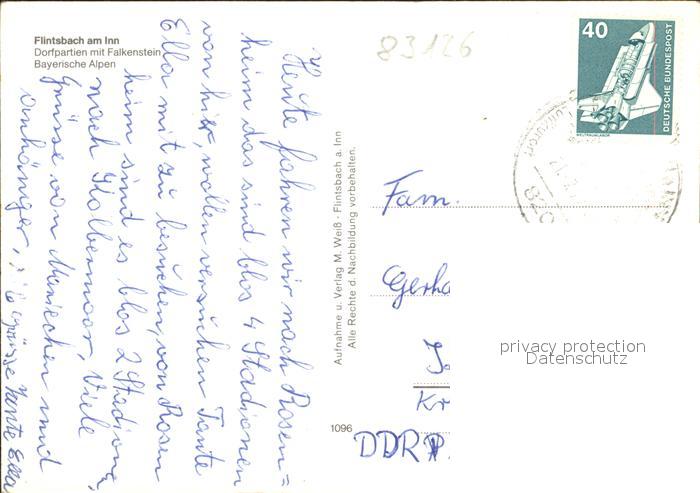 Flintsbach am Inn
Dorfpartien mit Falkenstein
Bayerische Alpen
83126
40
DEUTSCHE BUNDESPOST
WELTRAUMLABOR
Heute fahren wir nach Rosen=
heim das sind blos 4 Stadionen
von hir, wollen versuchen Tante
Ella mit zu besuchen, von Rosen
heim sind es blos 2 Stadion,
nach Kolbermoor, Viele
Grüsse von Mariechen und
anhänger,
Grüsse Tante Ella
Aufnahme u. Verlag M. Weiß - Flintsbach a. Inn
Alle Rechte d. Nachbildung vorbehalten.
1096
Fam.
Gerha
Kr
DDR
privacy protection
Datenschutz